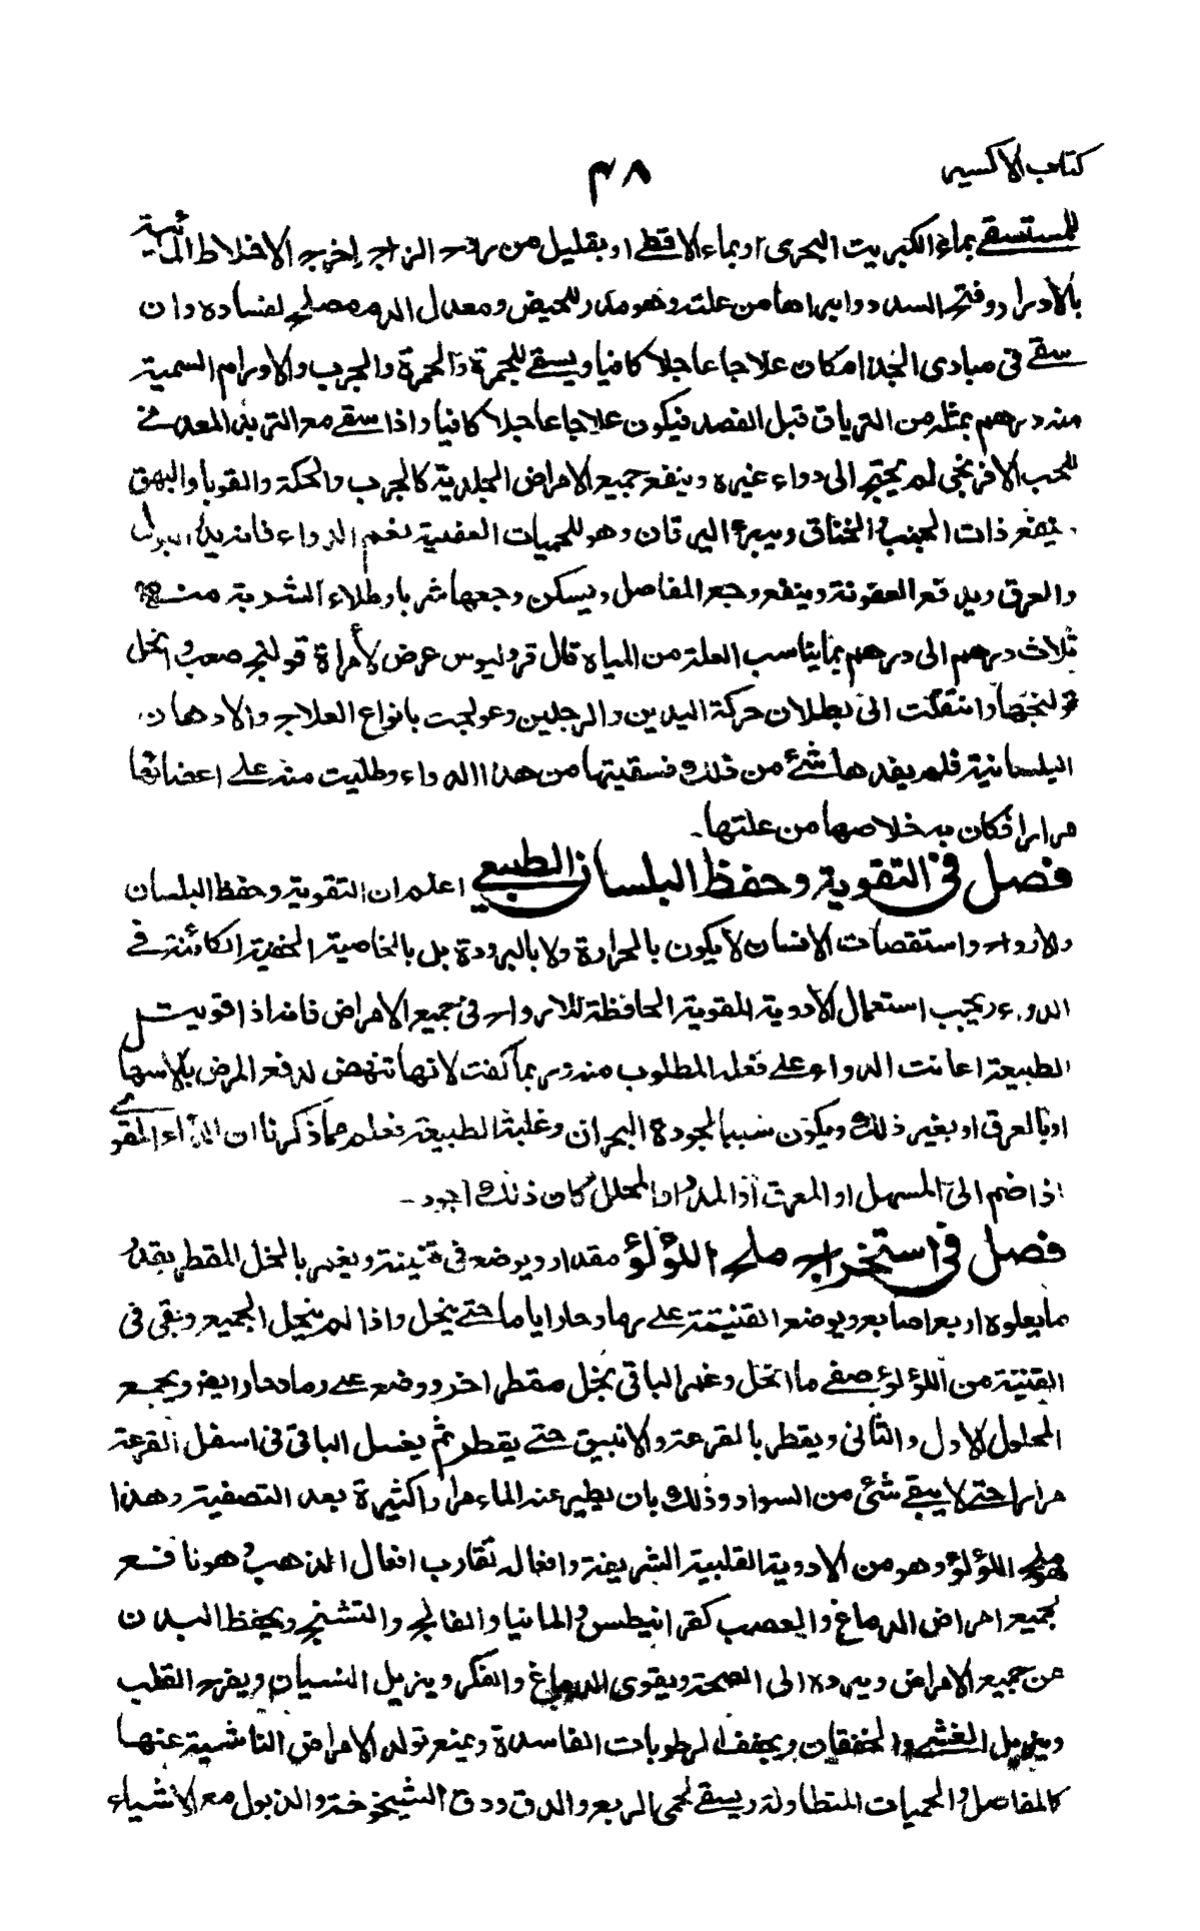 كتاب الاكسير
٤٨
للمستسقے بماء الكبريت البحرى او بماء الاقط او بقليل من روح الزاج اخرج الاخلاط المائية
بالادرار وفتح السدد وابراها من علته وهو مدر للحيض ومعدل الدم مصلح لفساده وان
سقے فى مبادى الجذام كان علاجا عاجلا كافيا ويسقے للجمرة والحمرة والجرب والاورام السمية
منه درهم بمثله من الترياق قبل الفصد فيكون علاجا عاجلا كافيا واذا سقے مع التربد المعدنے
للحب الافرنجى لم يحتج الى دواء غيره وينفع جميع الامراض الجلدية كالجرب والحكة والقوبا والبهق
ينفع ذات الجنب والخناق ويبرئ اليرقان وهو للحميات العفنية نعم الدواء فانه يدر البول
والعرق ويدفع العفونة وينفع وجع المفاصل ويسكن وجعها شربا وطلاء الشربة منه
ثلاث درهم الى درهم بما يناسب العلة من المياه قال قروليوس عرض لأمراة قولنج صعب وانحل
قولنجها وانتقلت الى بطلان حركة اليدين والرجلين وعولجت بانواع العلاج والادهان
البلسانية فلم يفدها شئ من ذلك فسقيتها من هذا الدواء وطليت منه على اعضائها
مرارا فكان به خلاصها من علتها۔
فصل فى التقوية وحفظ البلسان الطبيعي اعلم ان التقوية وحفظ البلسان
والارواح واستقصات الانسان لا يكون بالحرارة ولا بالبرودة بل بالخاصية الخفية الكائنة فے
الدواء ويجب استعمال الادوية المقوية الحافظة للارواح فى جميع الامراض فانه اذا قويت
الطبيعة اعانت الدواء على فعله المطلوب منه وربما كفت لانها تنهض لدفع المرض بالاسهال
او بالعرق او بغير ذلك ويكون سببا لجودة البحران وغلبة الطبيعة فعلم مما ذكرنا ان الدواء المقوے
اذا ضم الى المسهل او المعرق او المدر او المحلل كان ذلك اجود۔
فصل فى استخراج ملح اللؤلؤ مقدار ويوضع فى قنينة ويغمر بالخل المقطر بقدر
ما يعلوه اربع اصابع ويوضع القنينة على رماد حار اياما حتے ينحل واذا لم ينحل الجميع وبقى فى
القنينة من اللؤلؤ صفے ما انحل وغمر الباقى بخل مقطر اخر ووضع على رماد حار ايضا ويجمع
المحلول الاول والثانى ويقطر بالقرعة والانبيق حتے يقطر ثم يغسل الباقى فى اسفل القرعة
مرارا حتے لا يبقے شئ من السواد وذلك بان يطير عنه الماء مرارا كثيرة بعد التصفية وهذا
هو ملح اللؤلؤ وهو من الادوية القلبية الشريفة وافعاله تقارب افعال الذهب وهو نافع
لجميع امراض الدماغ والعصب كقرانيطس والمانيا والفالج والتشنج ويحفظ البدن
عن جميع الامراض ويرده الى الصحة ويقوى الدماغ والفكر ويزيل النسيان ويفرح القلب
ويزيل الغشے والخفقان ويجفف الرطوبات الفاسدة ويمنع تولد الامراض الناشية عنها
كالمفاصل والحميات المتطاولة ويسقے لحمى الربع والدق ودق الشيخوخة والذبول مع الاشياء